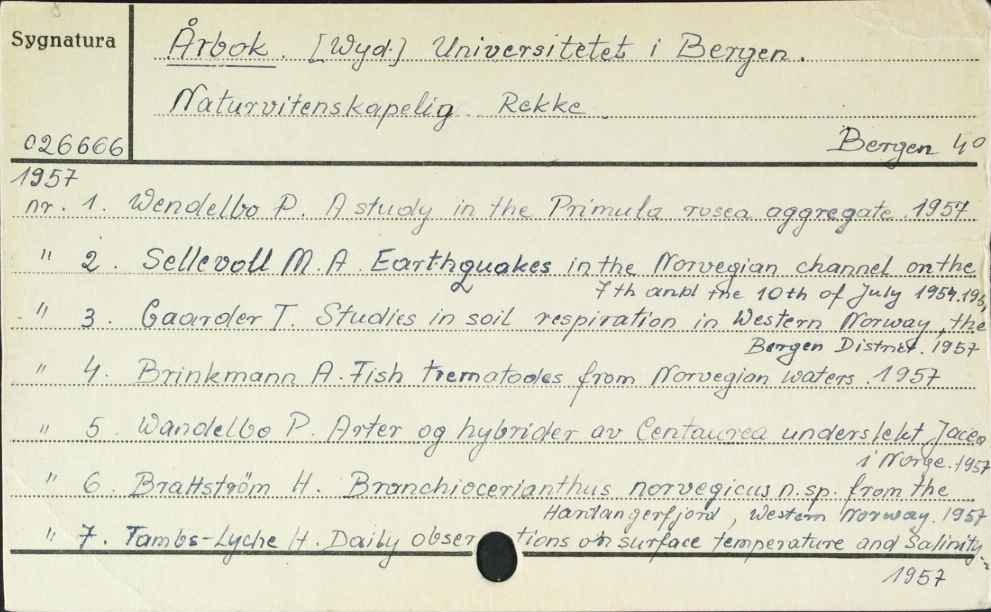 Sygnatura
Årbok. [Wyd.] Universitetet i Bergen.
Naturvitenskapelig Rekke
026666
Bergen 4°
1957
nr. 1. Wendelbo P. A study in the Primula rosea aggregate. 1957
" 2. Sellevoll M.A. Earthquakes in the Norvegian channel on the
7th and the 10th of July 1954.
" 3. Gaarder T. Studies in soil respiration in Western Norway, the
Bergen District. 1957
" 4. Brinkmann A. Fish trematodes from Norvegian waters. 1957
" 5. Wandelbo P. Arter og hybrider av Centaurea underslekt Jacea
i Norge. 1957
" 6. Brattström H. Branchiocerianthus norvegicus n.sp. from the
Hardangerfjord, Western Norway. 1957
" 7. Tambs-Lyche H. Daily obser tions on surface temperature and Salinity.
1957